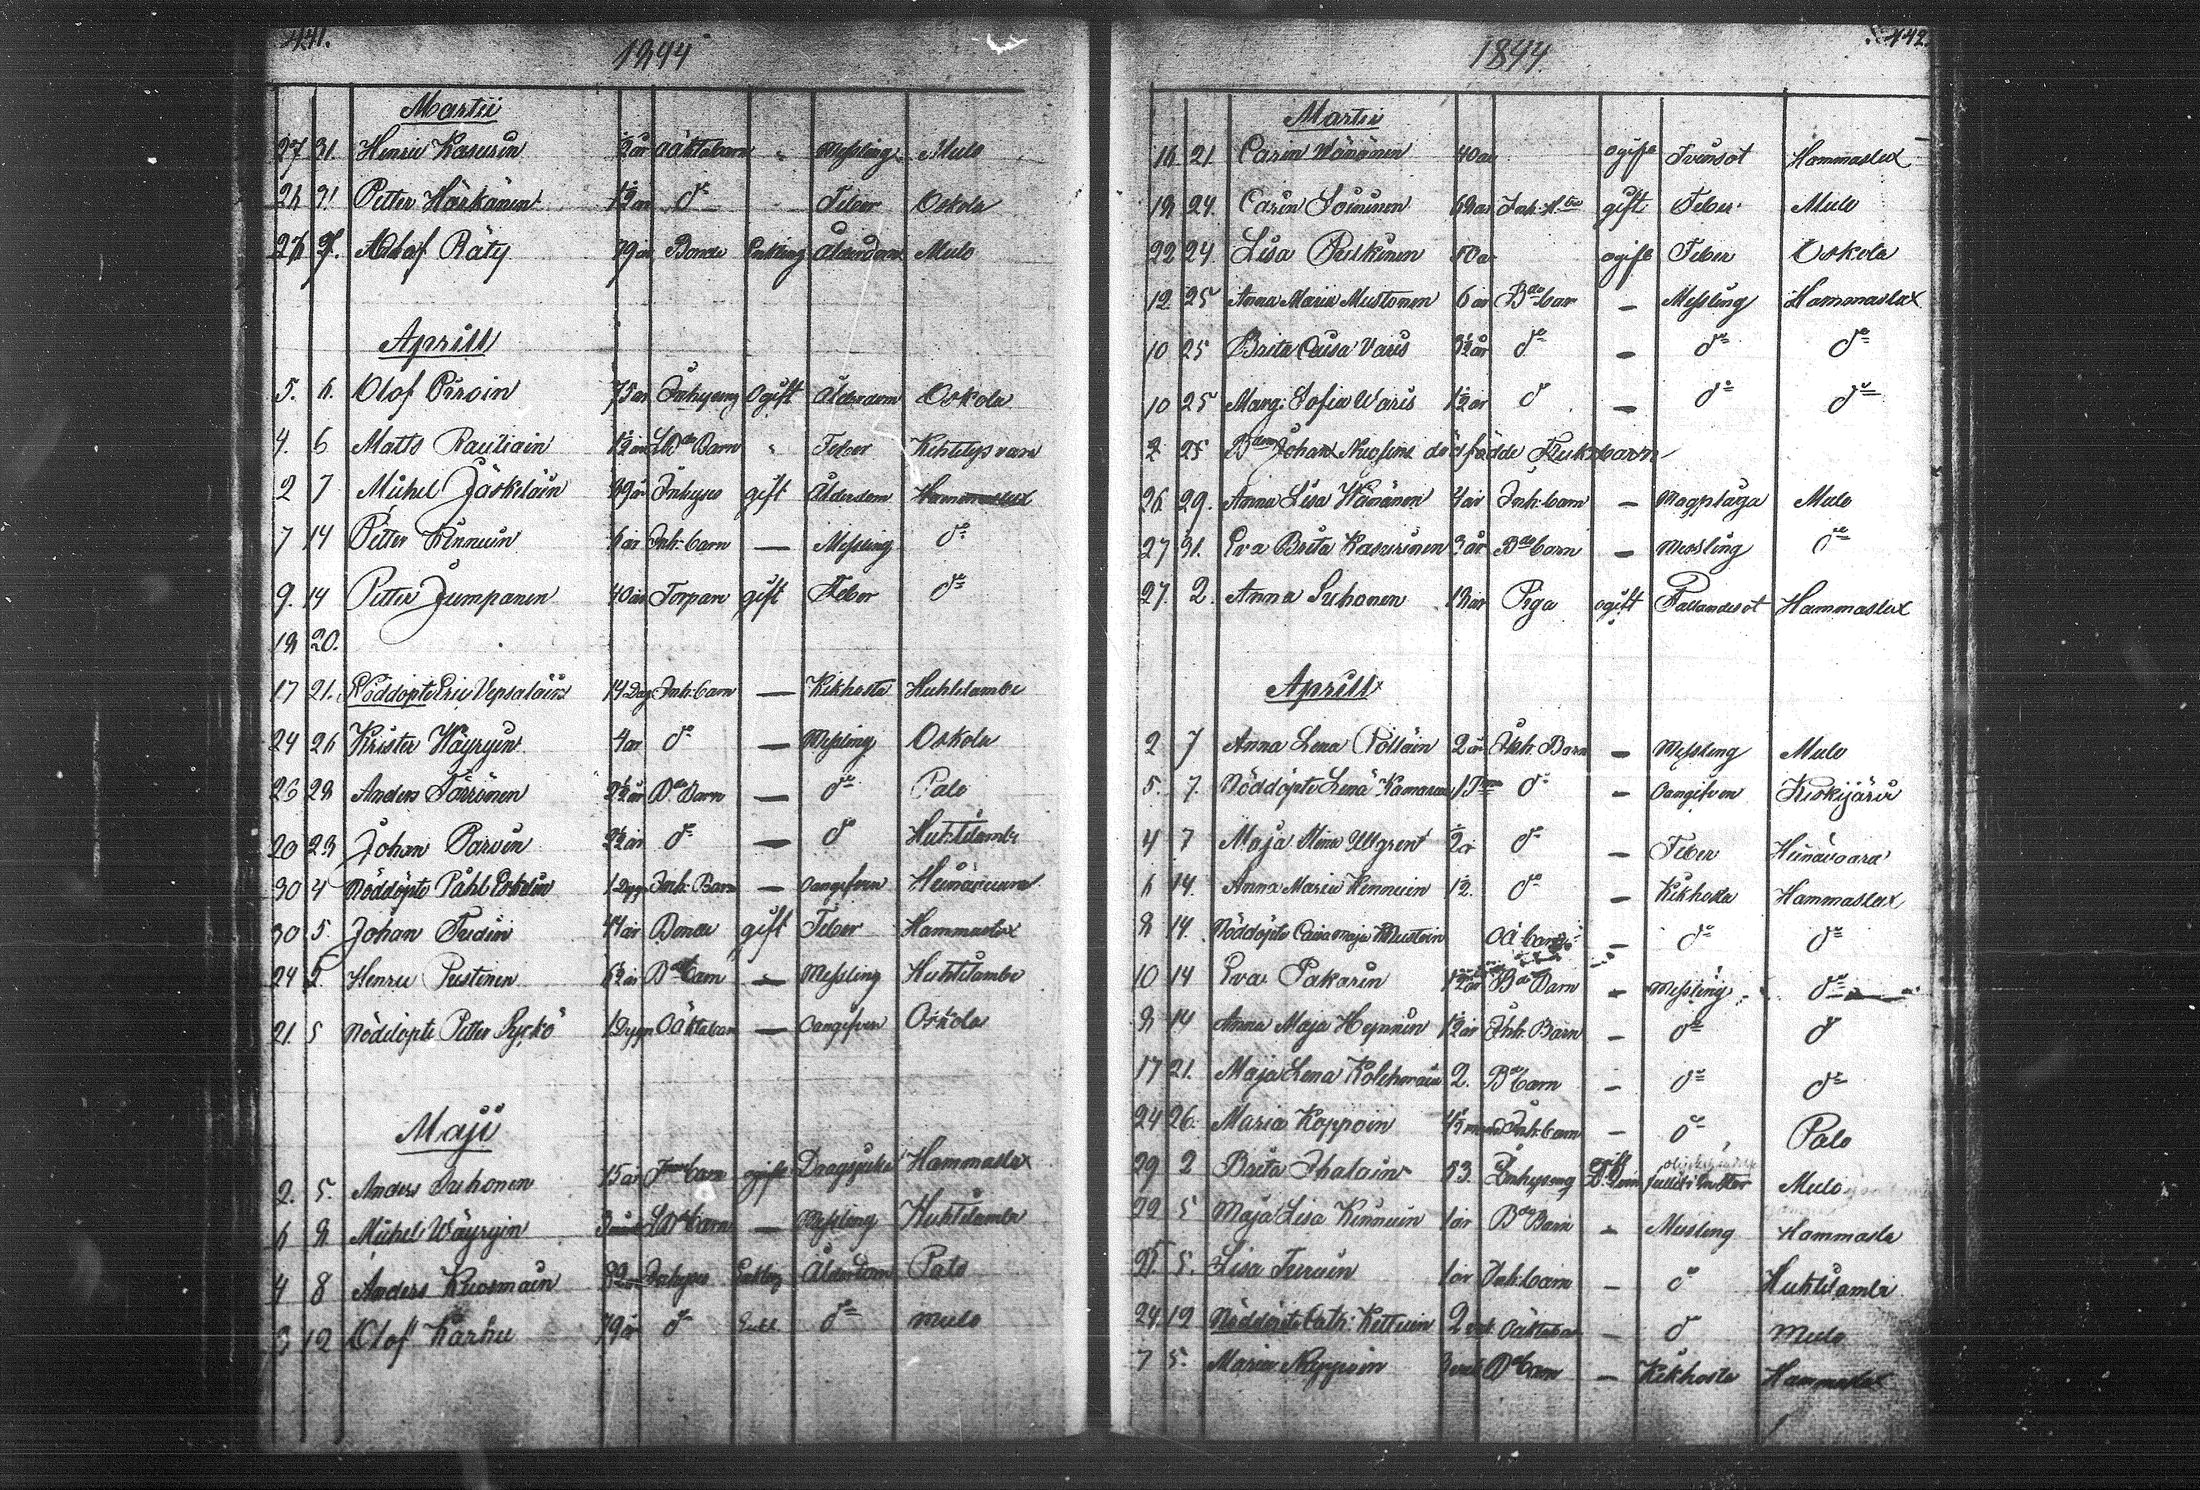 441.
1844
Martii
27 31. Henric Kasurin ½ år oäktabarn " Messling Mulo
28 31 Petter Härkänen 1½ år do Feber Oskola
28 Adolf Räty 79 år Bonde Enkling Ålderdom Mulo
Aprill
5. 6. Olof Piroin 75 år Inhyseng Ogift Ålderdom Oskola
4. 6 Matts Rautiain 1½ år Barn " Feber Kihtelysvara
2 7 Michel Jäskeläin 89 år Inhyses gift Ålderdom Hammaslax
7 14 Petter Kinnuin 6 år Inh: barn — Messling do
9. 14 Petter Jumpanen 40 år Torpan gift Feber do
18 20.
17 21. Nöddöpte Eric Vepsäläin 14 Dag Inh: barn — Kikhosta Huhtilambi
24 26 Krister Wäyryin 4 år do — Messling Oskola
26 28 Anders Törrönen 2½ år Bde Barn — do Palo
20 28 Johan Parvin 2½ år do — do Huhtilambi
30 4 Nöddöpte Påhl Eskelin 1 Dygn Inh: Barn — Oangifven Heinävaara
30 5. Johan Turuin 44 år Bonde gift Feber Hammaslax
24 2. Henric Pustinen 6½ år Bde barn — Messling Huhtilambi
21. 5 Nöddöpte Petter Pyckö 1 Dygn Oäktabarn — Oangifven Oskola
Maji
2. 5. Anders Suhonen 15 år barn ogift Hammaslax
6 8 Michel Wäyryin 3 barn — Messling Huhtilambi
4 8 Anders Kuosmain Inhyses Enkling Ålderdom Palo
3 12 Olof Karhu 79 år do Enkl do Mulo
442.
1844
Martii
16 21. Carin Wänänen 40 år ogift Tvinsot Hammaslax
18 24. Carin Soininen 68 år gift Feber Mulo
22 24. Lisa Puikinen 50 år ogift Feber Oskola
12 25 Anna Maria Mustonen 6 år Bde bar — Messling Hammaslax
10 25 Brita Caisa Varis 3½ år do — do do
10 25 Marg: Sofia Waris 1½ år do — do do
2 25 Johan dödfödde Flickebarn
26 29. Anna Lisa Wänänen 4 år Inh: barn — Magplåga Mulo
27 31. Eva Brita Kasurinen 3 år Bde barn — Messling do
27. 2. Anna Suhonen 18 år Piga ogift Fallandesot Hammaslax
Aprill
2 7 Anna Lena Pölläin 2 år Inh: Barn — Messling Mulo
5. 7. Nöddöpte Lena do — Oangifven Kiskijärvi
4 7 Maja Stina Ullgren ½ år do — Feber Heinävaara
6 14. Anna Maria Kinnuin 1½. do — Kikhosta Hammaslax
8 14. Nöddöpte Caisa Maja OÄ barn — do do
10 14 Eva Pakarin 1½ år Bde Barn — Messling do
8 14 Anna Maja Heynnin 1½ år Inh: Barn — do do
17 21. Maja Lena Kolehmain 2. Bde barn — do do
24 26. Maria Koppoin Inh: barn — do Palo
29 2 Brita Ihalain 53. Inhyseng Mulo
22 5 Maja Lisa Kinnuin 1 år Bde Barn — Messling Hammasla
25 5. Lisa Turuin 1 år Inh: barn — do Huhtilambi
24 12 Nöddöpte Cath: Kettuin 2 Oäktabar — do Mulo
7 5. Maria Nappoin 3 Bde barn — Kikhosta Hammaslax